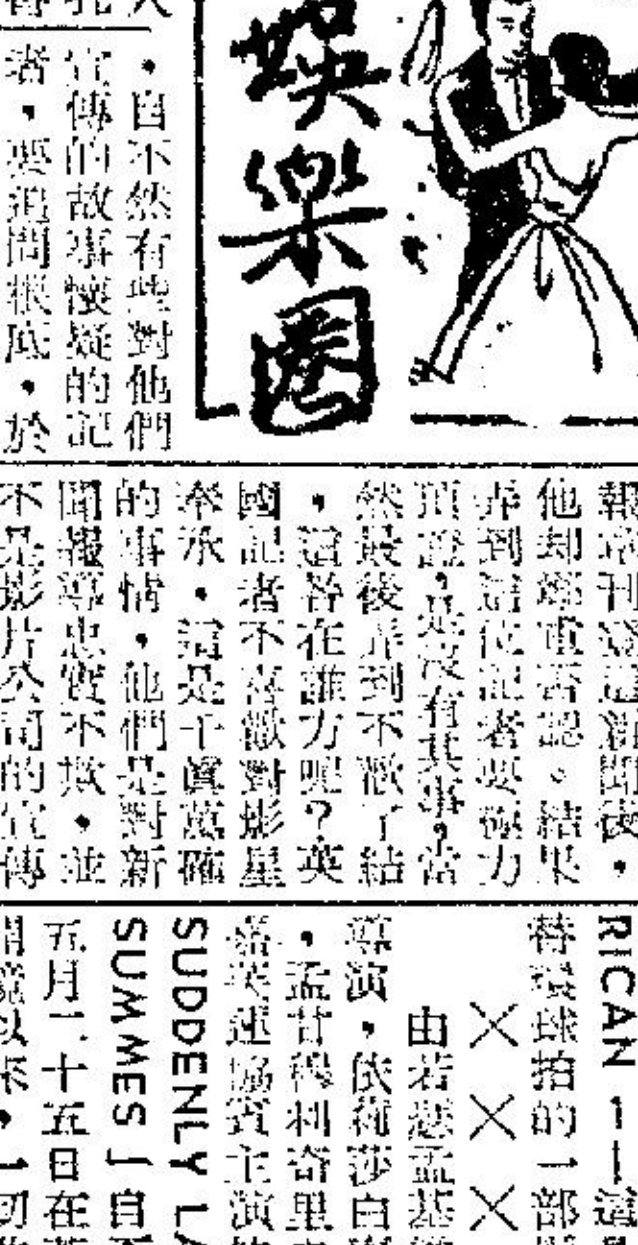 娛樂圈
，自不然有些對他們
宣傳的故事懷疑的記
者，要追問根底，於
報章刊登這新聞後，
他却鄭重否認。結果
弄到這位記者要極力
頂證，是沒有其事，當
然最後弄到不歡了結
，這咎在誰方呢？英
國記者不喜歡對影星
奉承，這是千眞萬確
的事情，他們是對新
聞報導忠實不欺，並
不是影片公司的宣傳
RICAN 」——這
替環球拍的一部
× × ×
由若瑟孟基
導演，依莉莎白
，孟甘穆利奇里
嘉芙蓮協賓主演
SUDDENLY LA
SUMMES 」自
五月二十五日在
開鏡以來，一切